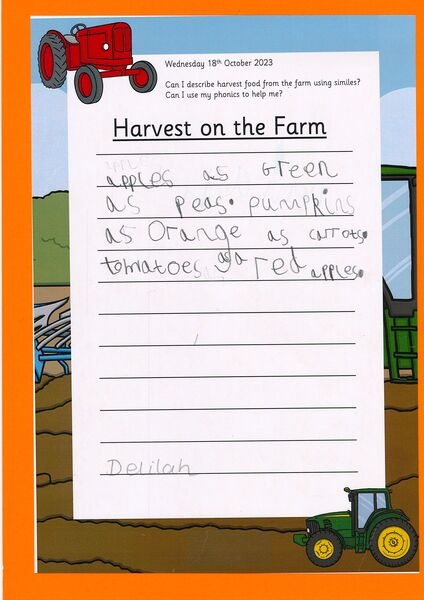 Wednesday 18th October 2023
Can I describe harvest food from the farm using similes?
Can I use my phonics to help me?
Harvest on the Farm
apples as Green
as peas. pumpkins
as Orange as carrots.
tomatoes as red apples.
Delilah